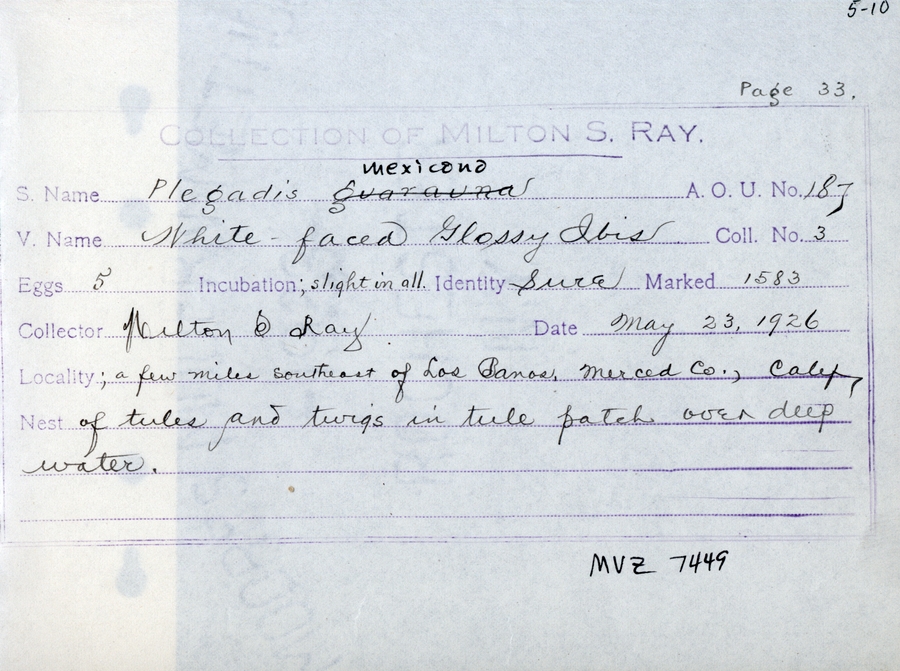 5-10
Page 33.
COLLECTION OF MILTON S. RAY.
mexicana
S. Name Plegadis guarauna A. O. U. No. 187
V. Name White-faced Glossy Ibis Coll. No. 3
Eggs 5 Incubation; slight in all. Identity Sure Marked 1583
Collector Milton S Ray Date May 23, 1926
Locality; a few miles southeast of Los Banos, Merced Co., Calif,
Nest of tules and twigs in tule patch over deep
water.
MVZ 7449